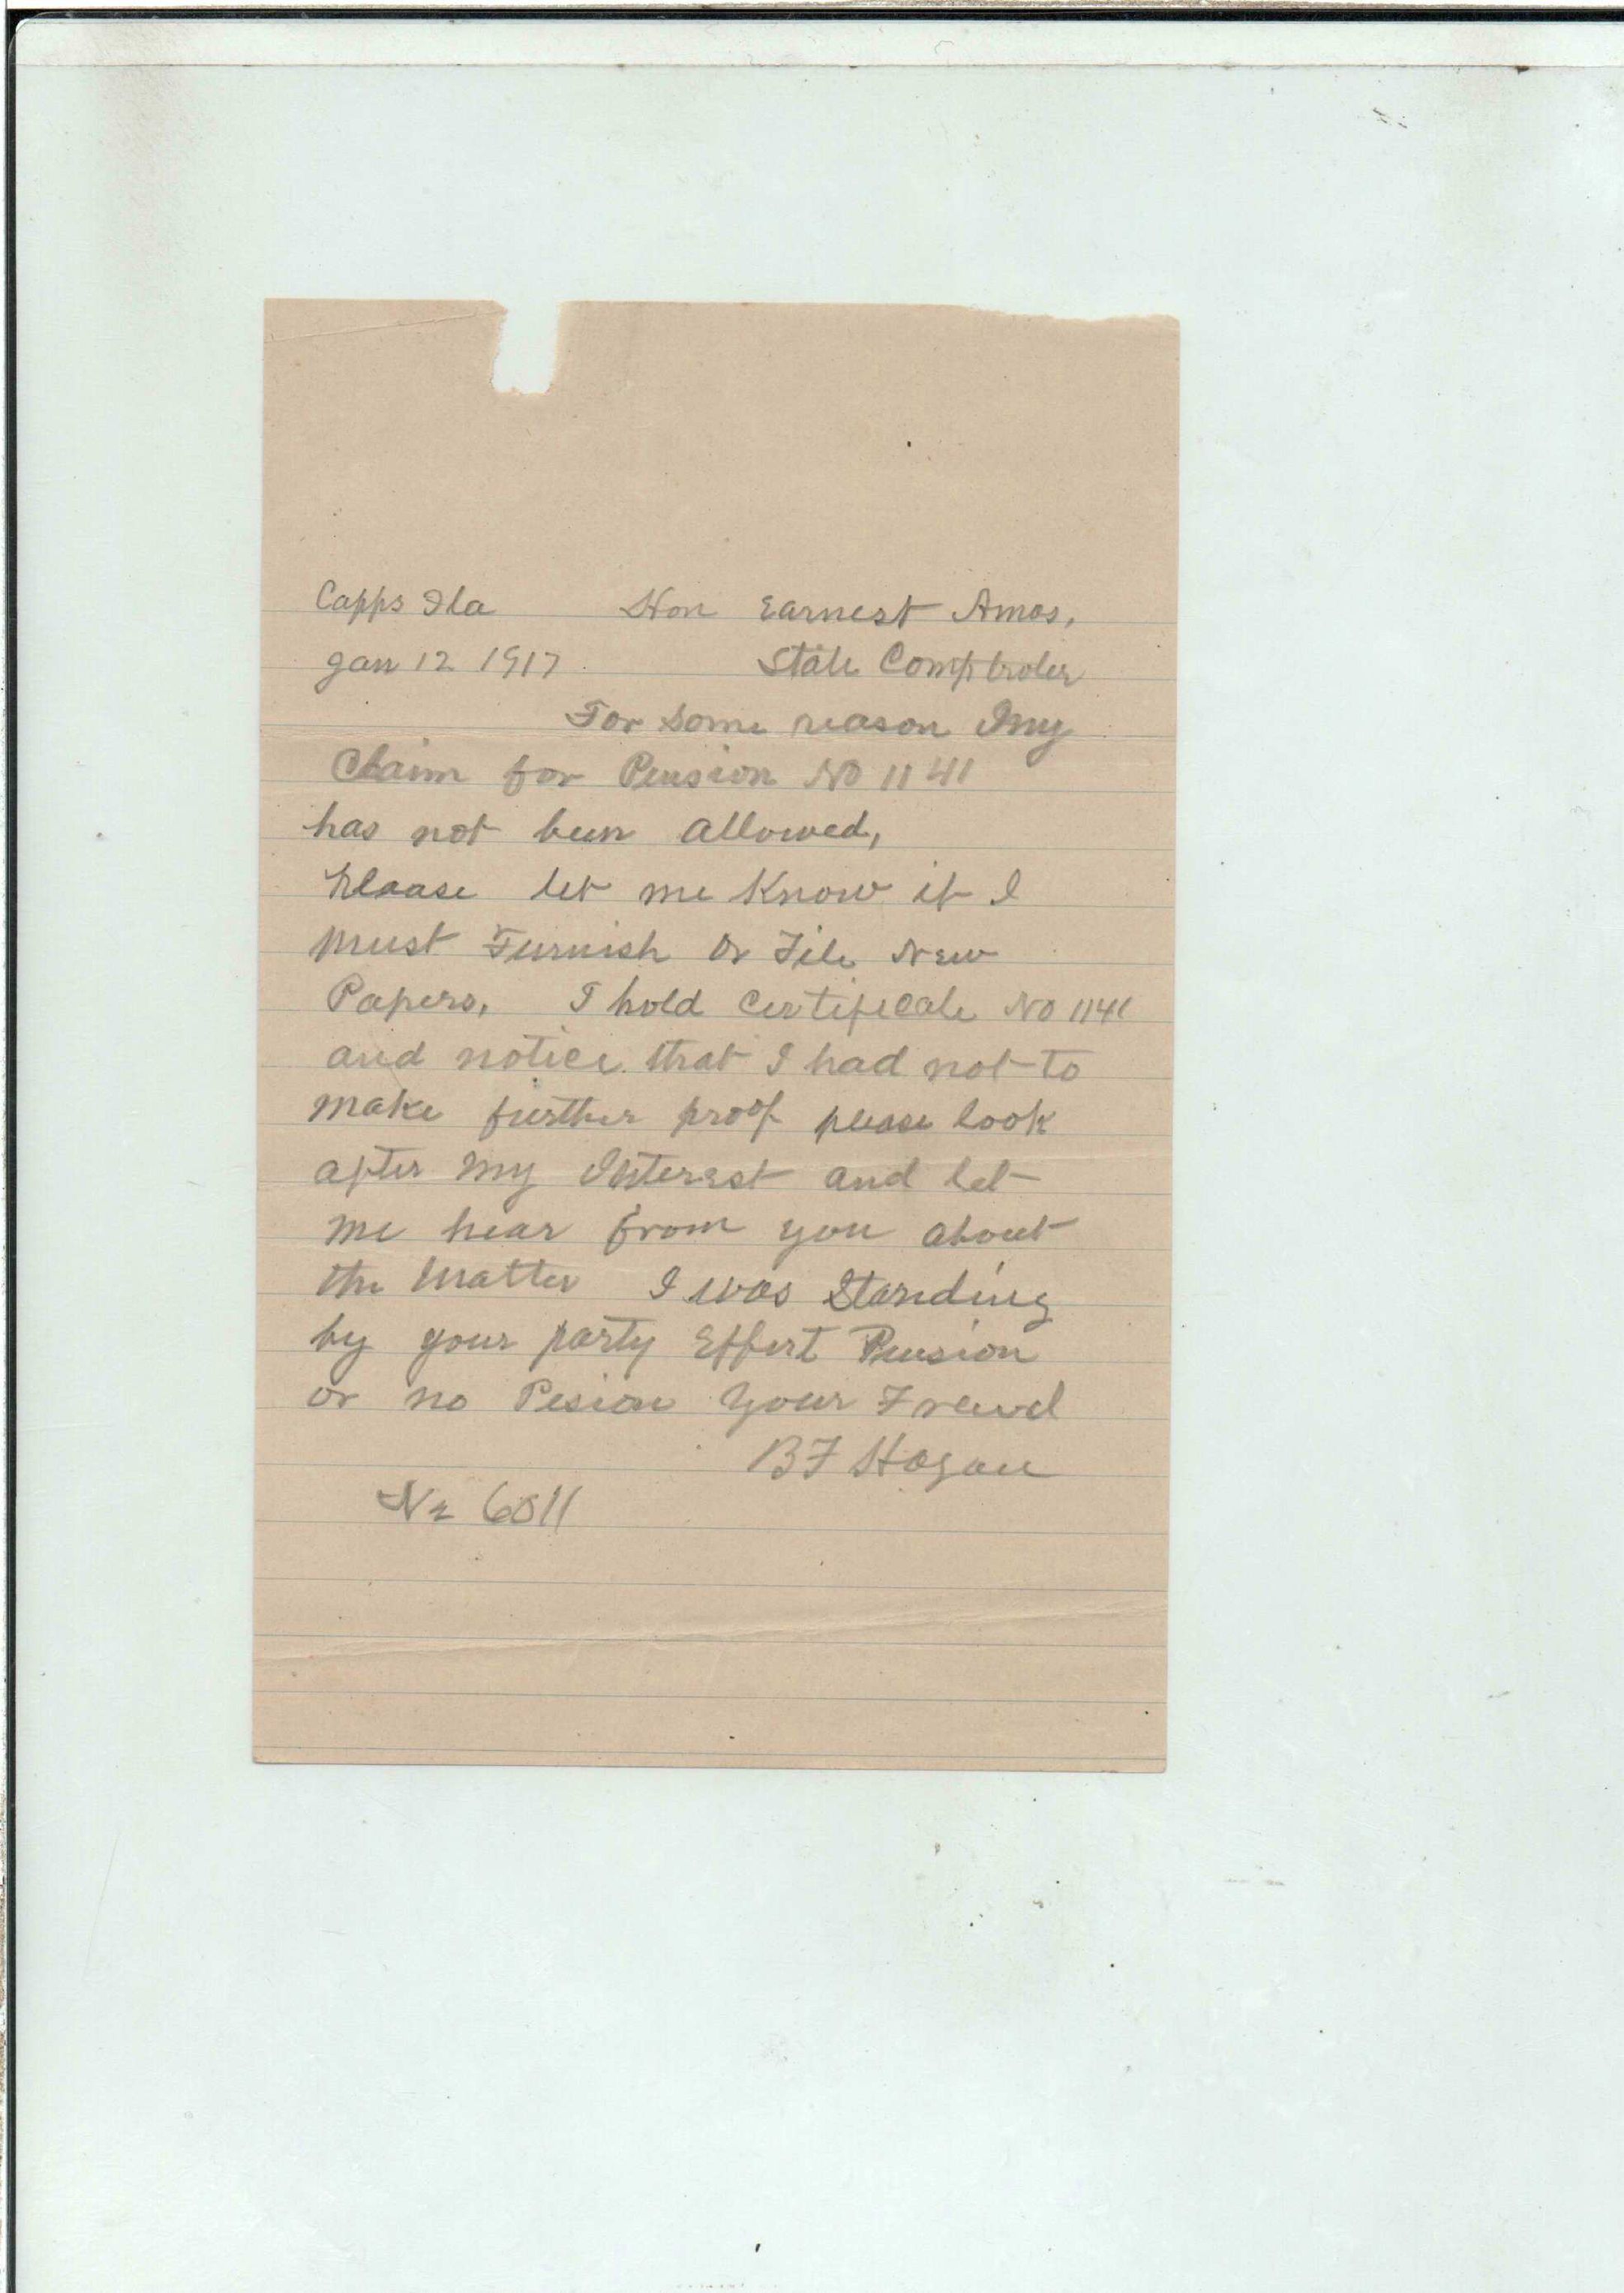 Capps Fla Hon Earnest Amos,
Jan 12 1917 State Comptroler
For some reason My
Claim for Pension No 1141
has not been allowed,
Please let me Know if I
must Furnish or File New
Papers, I hold Certificate No 1141
and notice that I had not to
make further proof please look
after my Interest and let
me hear from you about
the matter I was Standing
by your party Effort Pension
or no Pesion Your Freind
BF Hogan
No 6511